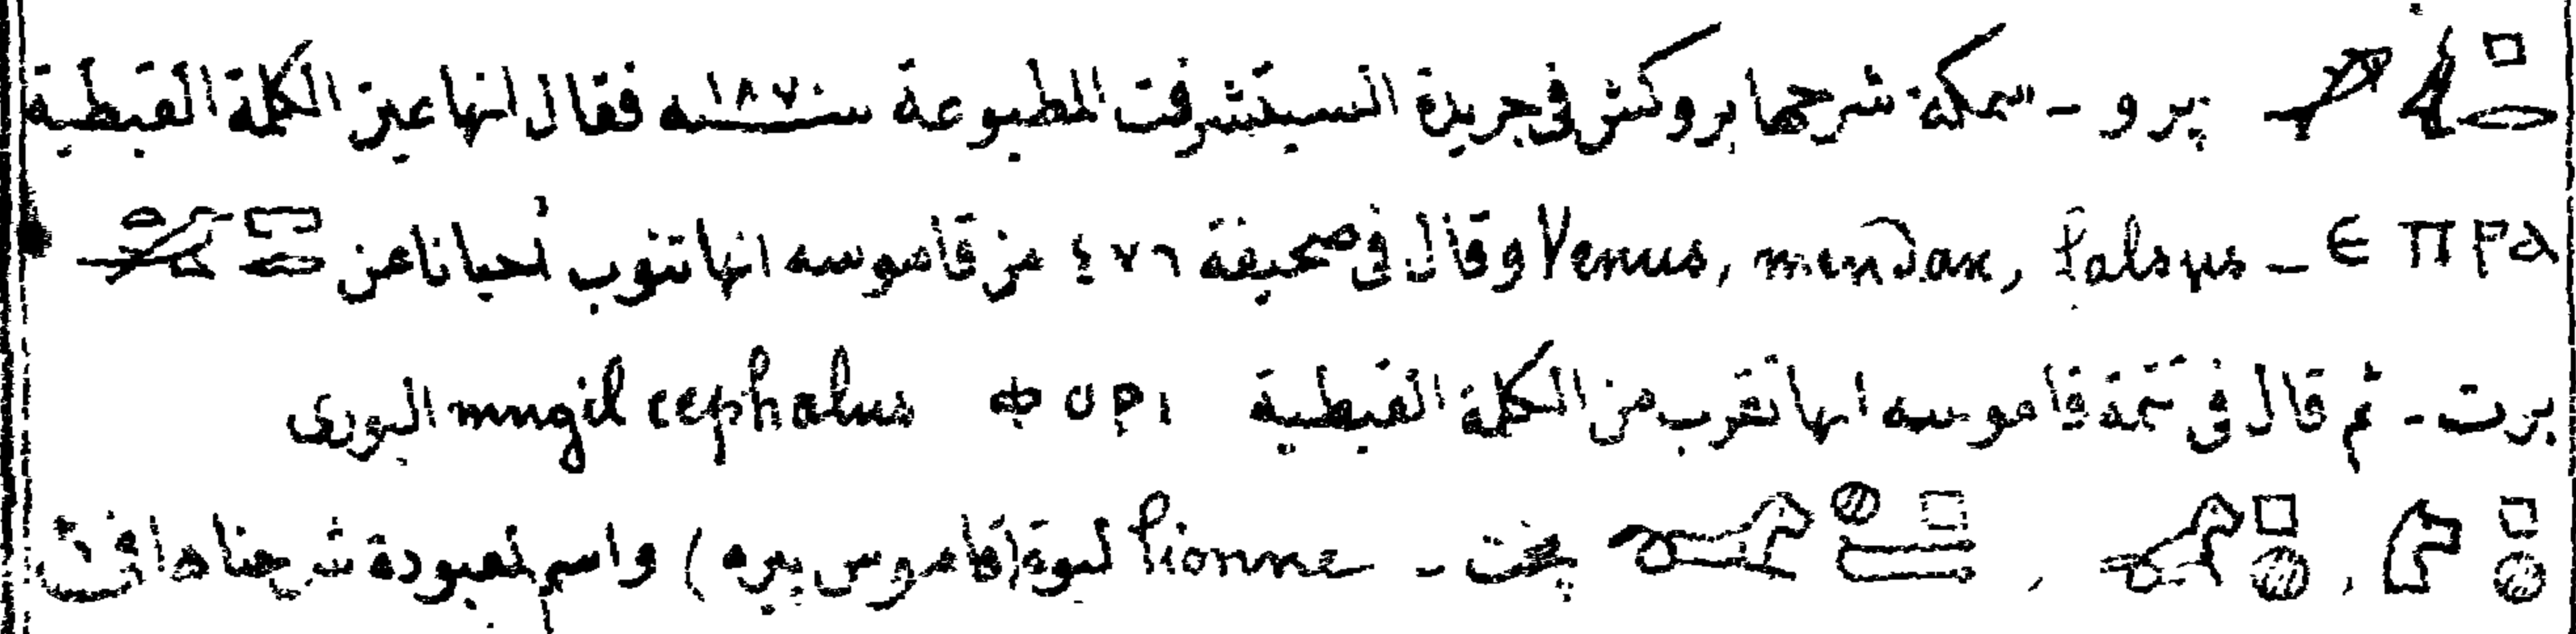 پرو - سمكة شرحها بروكش فى جريدة السيتشرفت المطبوعة سنة ١٨٧٠ فقال انها عين الكلمة القبطية
ⲈⲠⲢⲀ - Venus, mendax, falsus وقال فى صحيفة ٤٧٦ من قاموسه انها تنوب أحيانا عن
برت - ثم قال فى تتمة قاموسه انها تقرب من الكلمة القبطية ⲫⲟⲣⲓ mugil cephalus البورى
پخت - lionne لبوة (قاموس بيره) واسم لمعبودة شرحناها فى